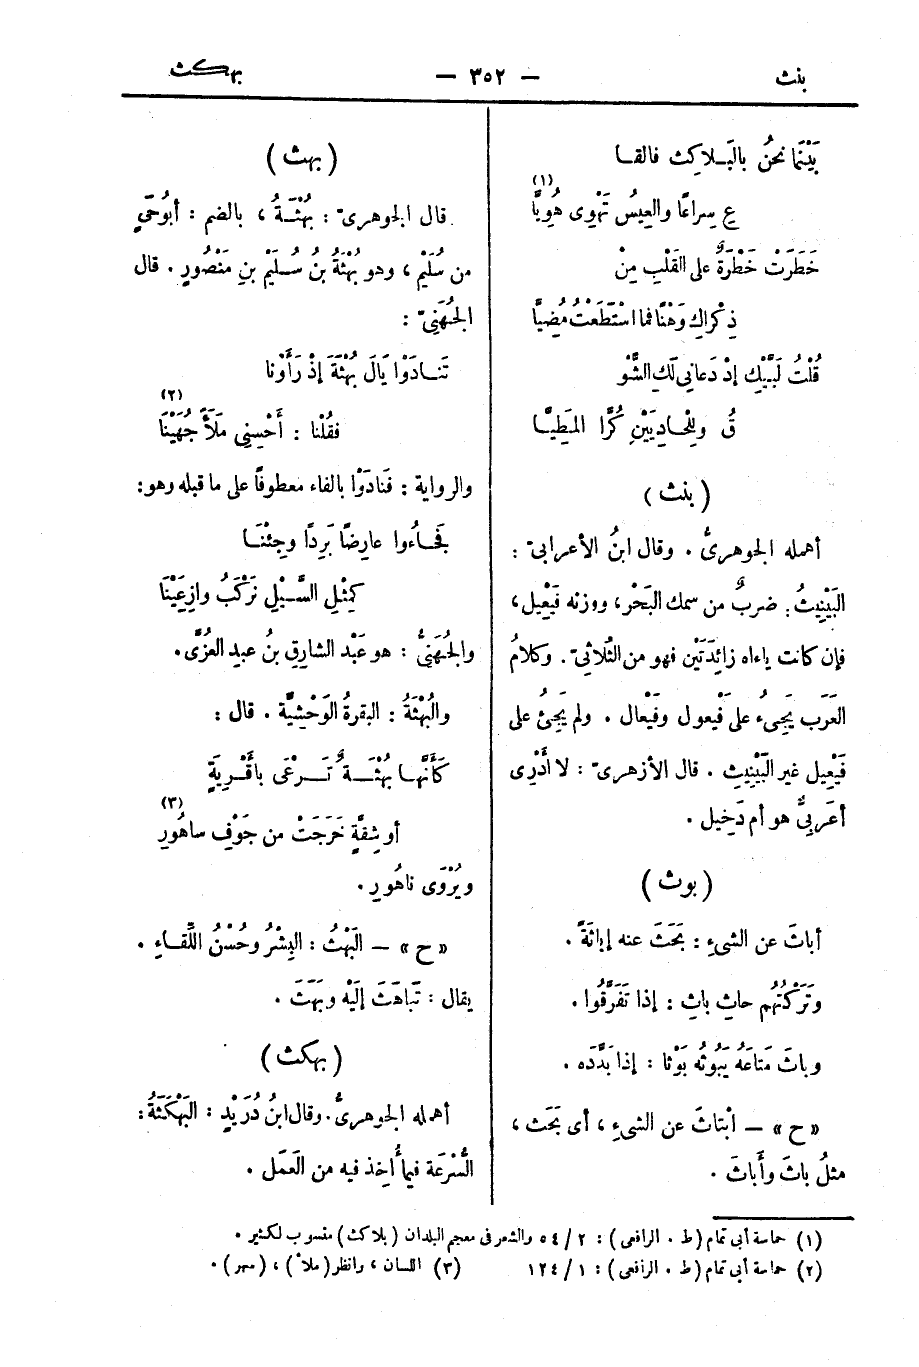 بنث — ٣٥٢ — بهكث
بَيْنَمَا نحنُ بالبَلاكِث فالقا
عِ سِراعًا والعِيسُ تَهْوِى هُوِيًّا (١)
خَطَرَتْ خَطْرَةٌ على القَلْبِ مِنْ
ذِكْراكِ وَهْنًا فما اسْتَطَعْتُ مُضِيًّا
قُلْتُ لَبَّيْكِ إذْ دَعانِى لَكِ الشَّوْ
قُ وللِحادِيَيْنِ كُرَّا المَطِيَّا
( بنث )
أهمله الجوهرىُّ . وقال ابنُ الأعرابىّ :
البَيْنِيثُ: ضربٌ من سمك البَحْر، ووزنه فَيْعِيل،
فإن كانت ياءاه زائِدَتَيْن فهو من الثُّلاثىّ . وكلامُ
العَرَب يَجِىءُ على فَيْعول وفَيْعال . ولم يَجِئْ على
فَيْعِيل غير البَّيْنِيثِ . قال الأزهرىّ : لا أَدْرِى
أعَرَبِىٌّ هو أم دَخِيل .
( بوث )
أباثَ عن الشىءِ : بَحَثَ عنه إباثَةً .
وتَرَكْتُهُم حاثِ باثِ : إذا تَفَرَّقُوا .
وباثَ مَتاعَهُ يَبُوثُه بَوْثا : إذا بَدَّدَه .
« ح » — ابْتاثَ عن الشىءِ ، أى بَحَث ،
مثلُ باثَ وأَباثَ .
( بهث )
قال الجوهرىّ : بُهْثَةُ ، بالضم : أبُوحَىٍّ
من سُلَيْم ، وهو بُهْثَةُ بنُ سُلَيْم بنِ مَنْصُورٍ . قال
الجُهَنِىّ :
تَنادَوْا يَالَ بُهْثَةَ إذْ رَأَوْنا
فقُلْنا : أَحْسِنِى مَلَأً جُهَيْنَا (٢)
والرواية : فَنادَوْا بالفاء معطوفًا على ما قبله وهو:
فَجاءُوا عارِضًا بَرِدًا وجِئْنَا
كمِثْلِ السَّيْلِ نَرْكَبُ وازِعَيْنَا
والجُهَنِىُّ : هو عَبْد الشارِقِ بنُ عبدِ العزَّى.
والبُهْثَةُ : البقرةُ الوَحْشِيَّة . قال :
كَأَنَّها بُهْثَةٌ تَرْعَى بأَقْرِيَةٍ
أو شِقَّةٍ خَرَجَتْ من جَوْفِ ساهُورِ (٣)
ويُرْوَى ناهُورِ .
« ح » — البَهْثُ : البِشْرُ وحُسْنُ اللِّقاءِ .
يقال : تَباهَثَ إلَيْه وبَهَثَ .
( بهكث )
أهمله الجوهرىُّ . وقال ابنُ دُرَيْدٍ : البَهْكَثَةُ :
السُّرْعَة فيما أُخِذ فيه من العَمَل .
(١) حماسة أبى تمام (ط . الرافعى) : ٥٤/٢ والشعر فى معجم البلدان (بلاكث) منسوب لكثير .
(٢) حماسة أبى تمام (ط . الرافعى) : ١٢٤/١ (٣) اللسان ، وانظر (ملأ) ، (سهر) .